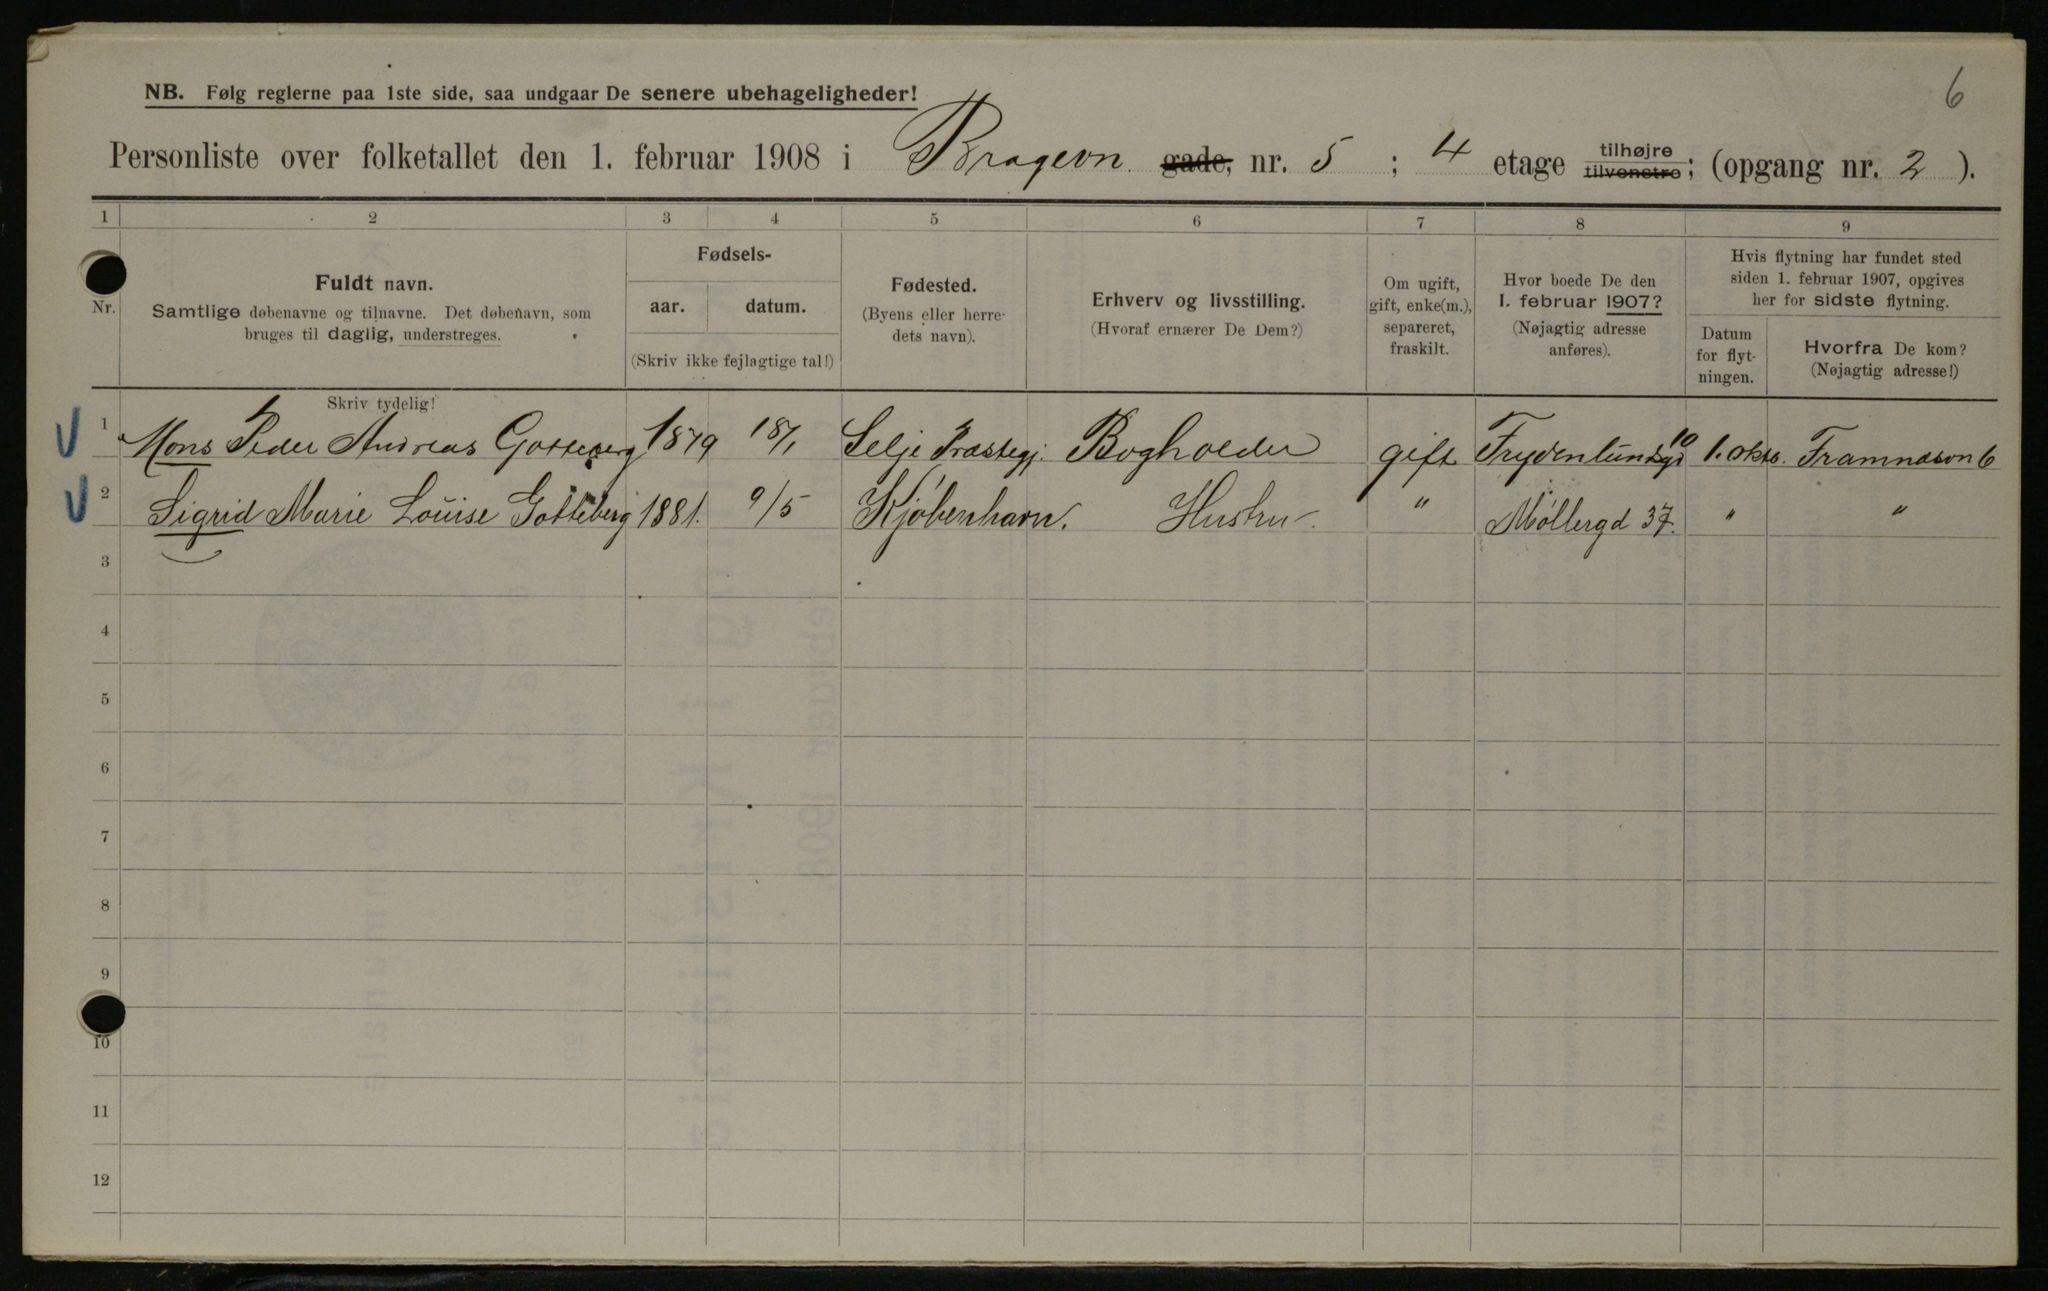 6
NB. Følg reglerne paa 1ste side, saa undgaar De senere ubehageligheder!
Personliste over folketallet den 1. februar 1908 i Bragevn. gade, nr. 5 ; 4 etage tilhøjre tilvenstre; (opgang nr. 2 ).
1 2 3 4 5 6 7 8 9
Nr.
Fuldt navn.
Samtlige døbenavne og tilnavne. Det døbenavn, som
bruges til daglig, understreges.
Skriv tydelig!
Fødsels-
aar. datum.
(Skriv ikke fejlagtige tal!)
Fødested.
(Byens eller herre-
dets navn).
Erhverv og livsstilling.
(Hvoraf ernærer De Dem?)
Om ugift,
gift, enke(m.),
separeret,
fraskilt.
Hvor boede De den
1. februar 1907?
(Nøjagtig adresse
anføres).
Hvis flytning har fundet sted
siden 1. februar 1907, opgives
her for sidste flytning.
Datum
for flyt-
ningen.
Hvorfra De kom?
(Nøjagtig adresse!)
1 Mons Peder Andreas Gotteberg 1879 18/1 Selje Præstegj. Bogholder gift Frydenlundsgd 10 1. okto. Framnæsvn 6
2 Sigrid Marie Louise Gotteberg 1881. 9/5 Kjøbenhavn. Hustru " Møllergd 37. " "
3
4
5
6
7
8
9
10
11
12